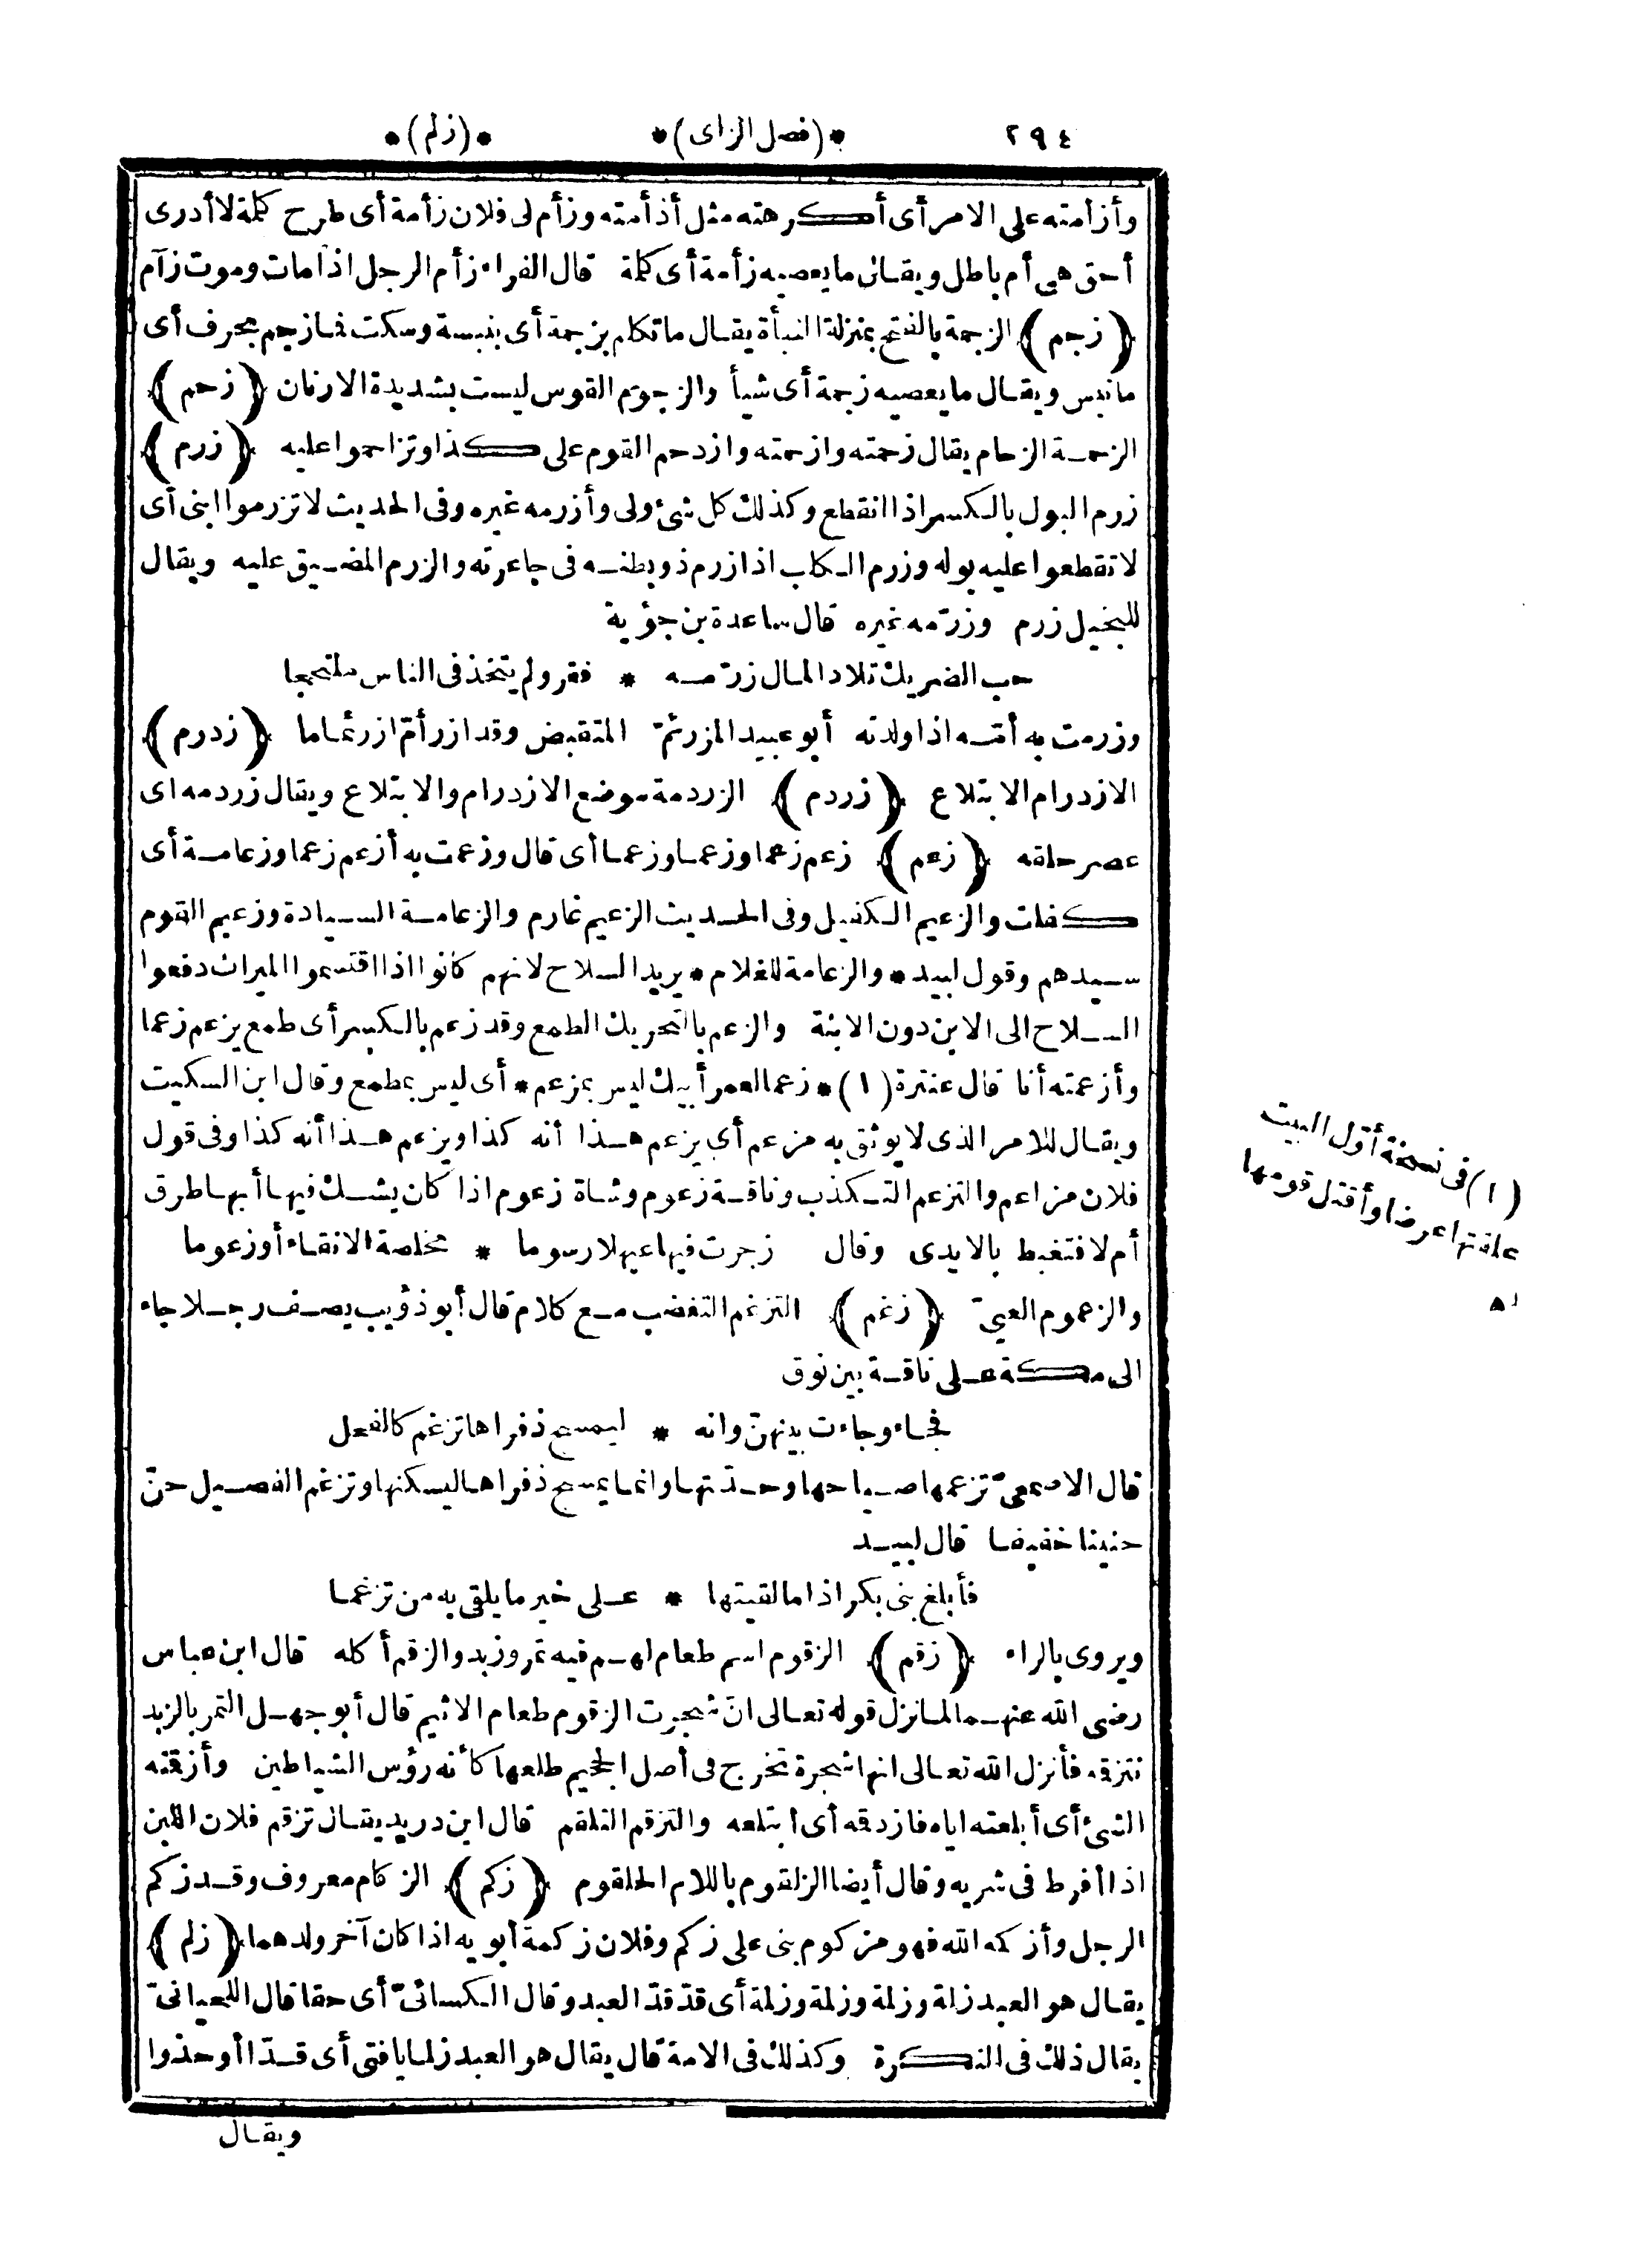 ٢٩٤ *(فصل الزاى)* *(زلم)*
وأزأمته على الامر أى أكرهته مثل أذأمته وزأم لى فلان زأمة أى طرح كلمة لا أدرى
أحق هى أم باطل ويقال ما يعصيه زأمة أى كلمة قال الفراء زأم الرجل اذا مات وموت زآم
﴿زجم﴾ الزجمة بالفتح بمنزلة النبأة يقال ما تكلم بزجمة أى بنبسة وسكت فما زجم بحرف أى
ما نبس ويقال ما يعصيه زجمة أى شيأ والزجوم القوس ليست بشديدة الارنان ﴿زحم﴾
الزحمة الزحام يقال زحمته وازحمته وازدحم القوم على كذا وتزاحموا عليه ﴿زرم﴾
زرم البول بالكسر اذا انقطع وكذلك كل شئ ولى وأزرمه غيره وفى الحديث لا تزرموا ابنى أى
لا تقطعوا عليه بوله وزرم الكلب اذا زرم ذو بطنه فى جاعرته والزرم المضيق عليه ويقال
للبخيل زرم وزرّمه غيره قال ساعدة بن جؤية
حب الضريك تلاد المال زرّمه * فقر ولم يتخذ فى الناس ملتحجا
وزرمت به أمّه اذا ولدته أبو عبيد المزرئمّ المتقبض وقد ازرأمّ ازرئماما ﴿زدرم﴾
الازدرام الابتلاع ﴿زردم﴾ الزردمة موضع الازدرام والابتلاع ويقال زردمه اى
عصر حلقه ﴿زعم﴾ زعم زعما وزعما وزعما أى قال وزعمت به أزعم زعما وزعامة أى
كفلت والزعيم الكفيل وفى الحديث الزعيم غارم والزعامة السيادة وزعيم القوم
سيدهم وقول لبيد * والزعامة للغلام * يريد السلاح لانهم كانوا اذا اقتسموا الميراث دفعوا
السلاح الى الابن دون الابنة والزعم بالتحريك الطمع وقد زعم بالكسر أى طمع يزعم زعما
وأزعمته أنا قال عنترة (١) * زعما لعمر أبيك ليس بمزعم * أى ليس بمطمع وقال ابن السكيت
ويقال للامر الذى لا يوثق به مزعم أى يزعم هذا أنه كذا ويزعم هذا أنه كذا وفى قول
فلان مزاعم والتزعم التكذب وناقة زعوم وشاة زعوم اذا كان يشك فيها أبها طرق
أم لا فتغبط بالايدى وقال زجرت فيها عيهلا رسوما * مخلصة الانقاء أو زعوما
والزعموم العيىّ ﴿زغم﴾ التزغم التغضب مع كلام قال أبو ذؤيب يصف رجلا جاء
الى مكة على ناقة بين نوق
فجاء وجاءت بينهنّ وانه * ليمسح ذفراها تزغم كالفحل
قال الاصمعىّ تزغمها صياحها وحدّتها وانما يمسح ذفراها ليسكنها وتزغم الفصيل حنّ
حنينا خفيفا قال لبيد
فأبلغ بنى بكر اذا ما لقيتها * على خير ما يلقى به من تزغما
ويروى بالراء ﴿زقم﴾ الزقوم اسم طعام لهم فيه تمر وزبد والزقم أكله قال ابن عباس
رضى الله عنهما لما نزل قوله تعالى انّ شجرت الزقوم طعام الاثيم قال أبو جهل التمر بالزبد
نتزقمه فأنزل الله تعالى انها شجرة تخرج فى أصل الجحيم طلعها كأنه رؤس الشياطين وأزقمته
الشئ أى أبلعته اياه فازدقمه أى ابتلعه والتزقم التلقم قال ابن دريد يقال تزقم فلان اللبن
اذا أفرط فى شربه وقال أيضا الزلقوم باللام الحلقوم ﴿زكم﴾ الزكام معروف وقد زكم
الرجل وأزكمه الله فهو مزكوم بنى على زكم وفلان زكمة أبويه اذا كان آخر ولدهما ﴿زلم﴾
يقال هو العبد زلمة وزلمة وزلمة وزلمة أى قدّ قدّ العبد وقال الكسائىّ أى حقا قال اللحيانىّ
يقال ذلك فى النكرة وكذلك فى الامة قال يقال هو العبد زلما يا فتى أى قدّا أو حذوا
ويقال
(١) فى نسخة أوّل البيت
علقتها عرضا وأقتل قومها
اه